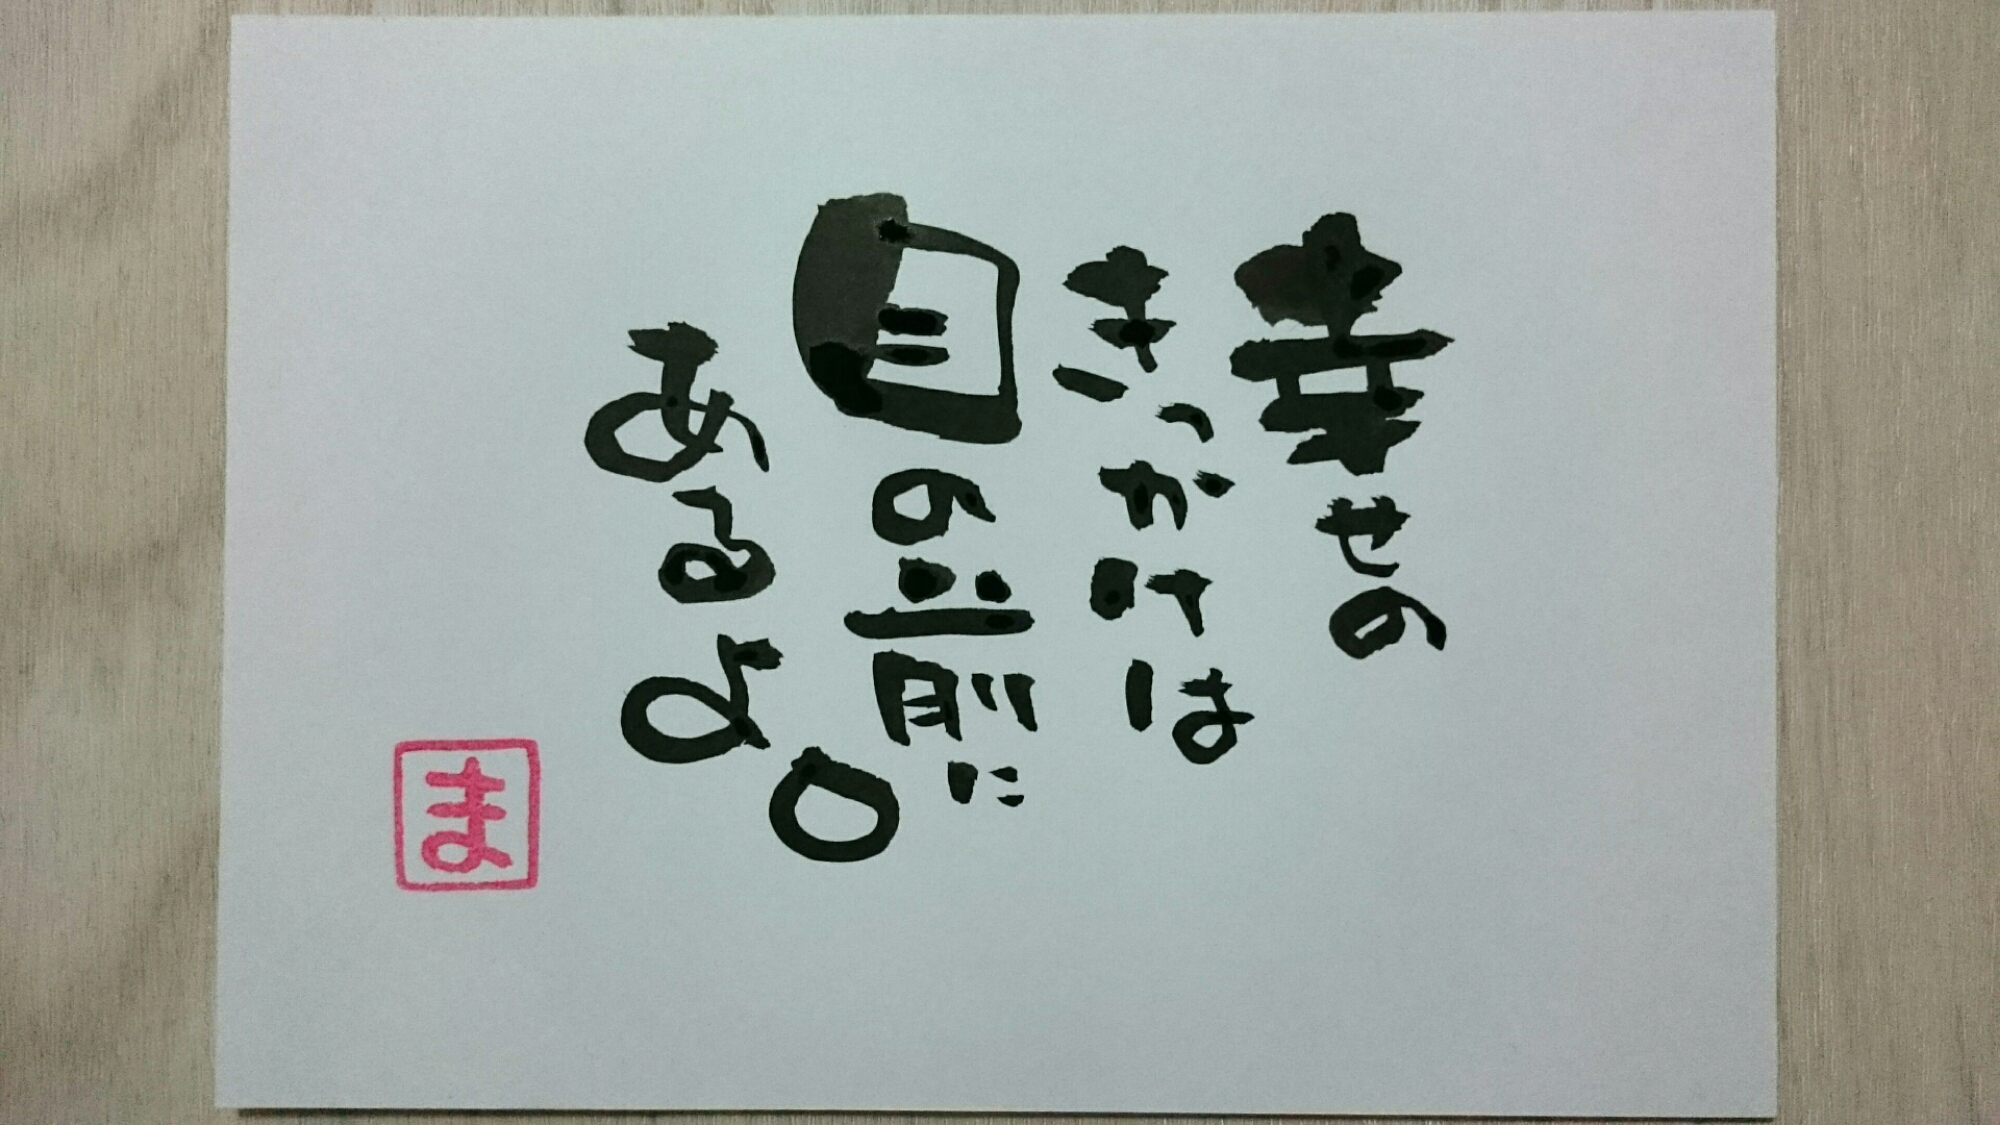 幸せの
きっかけは
目の前に
あるよ。
ま